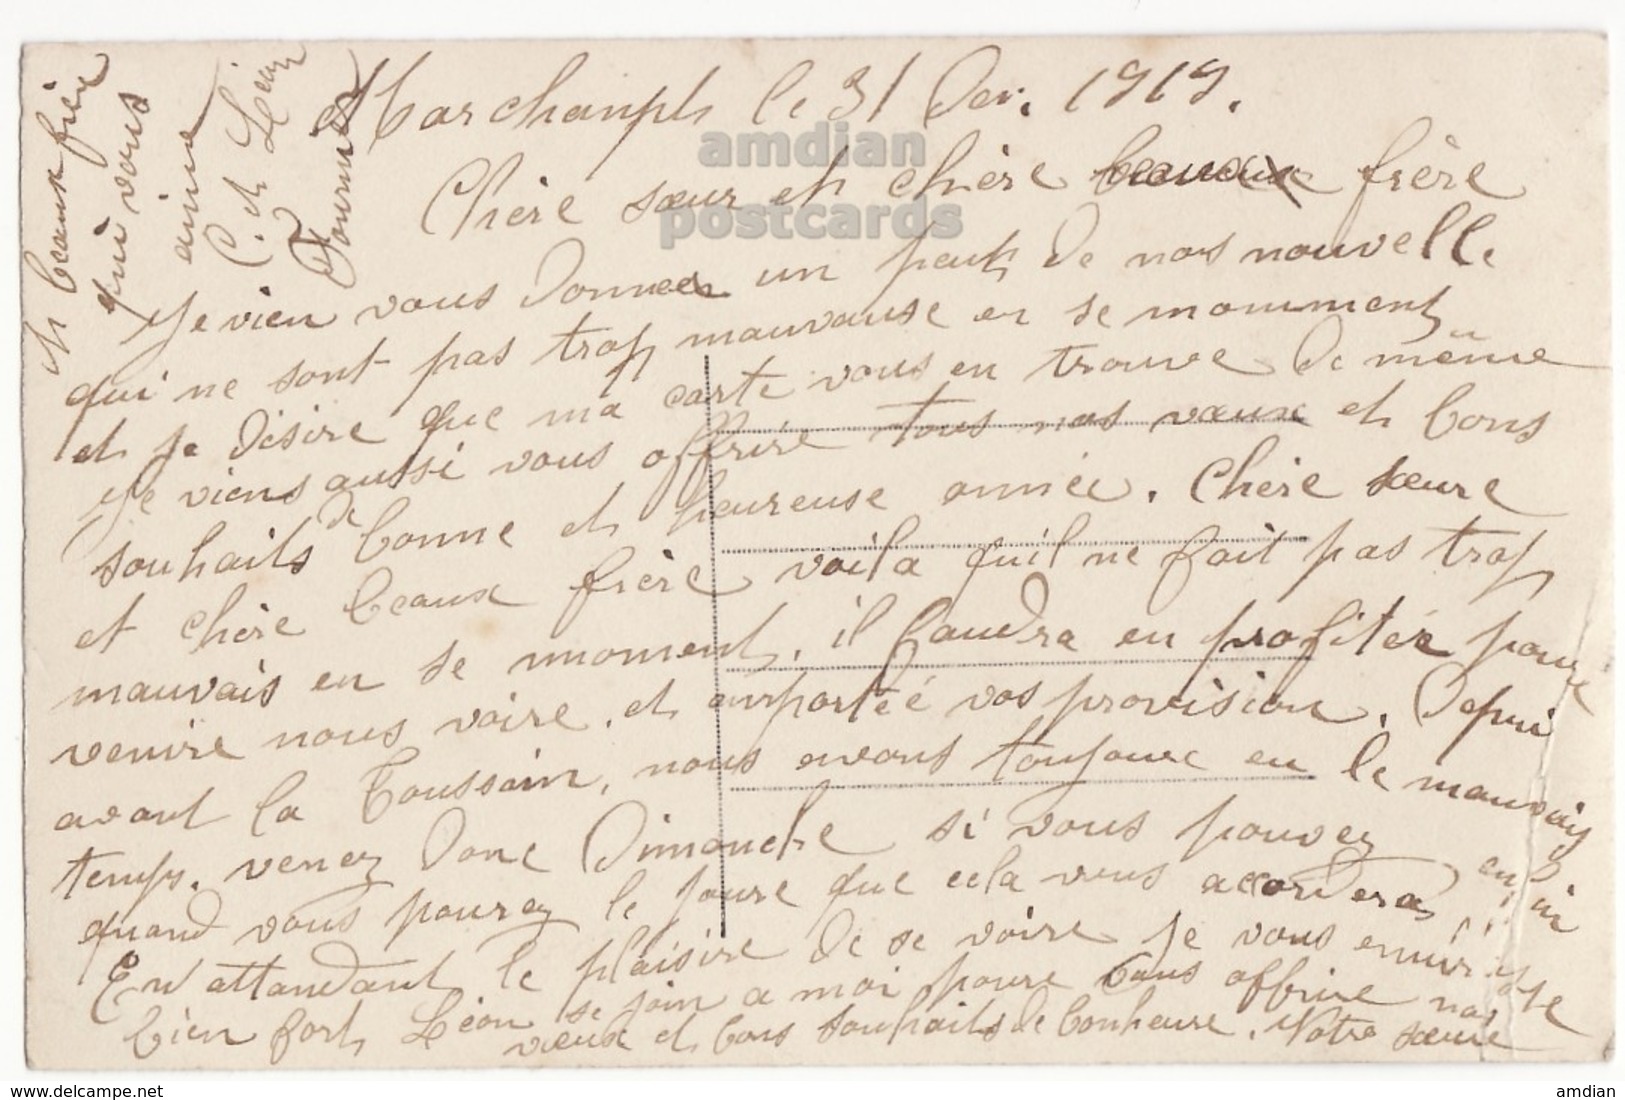 Marchampt le 31 Dec. 1919.
Chère sœur et chère beaux frère
Je vien vous donner un peut de nos nouvelle
qui ne sont pas trop mauvause en se momment
et je désire que ma carte vous en trouve de même
Je viens aussi vous offrire tous nos vœux et bons
souhaits de bonne et heureuse année. Chère sœure
et chère beaux frère voila qu'il ne fait pas trop
mauvais en se moment, il faudra en profitér pour
venire nous voire, et emporteé vos provision. Depui
avant la Toussain, nous avons toujoure eu le mauvais
temps. venez donc Dimanche si vous pouvez enfin
quand vous pourez le joure que cela vous acorderas,
En attendant le plaisire de se voire je vous
bien fort Léon se join a moi poure vous offrire nos
vœux et bons souhaits de bonheure. Votre sœure
et beaux frère
qui vous
aime
C. et Léon
Fournier
amdian
postcards
amdian